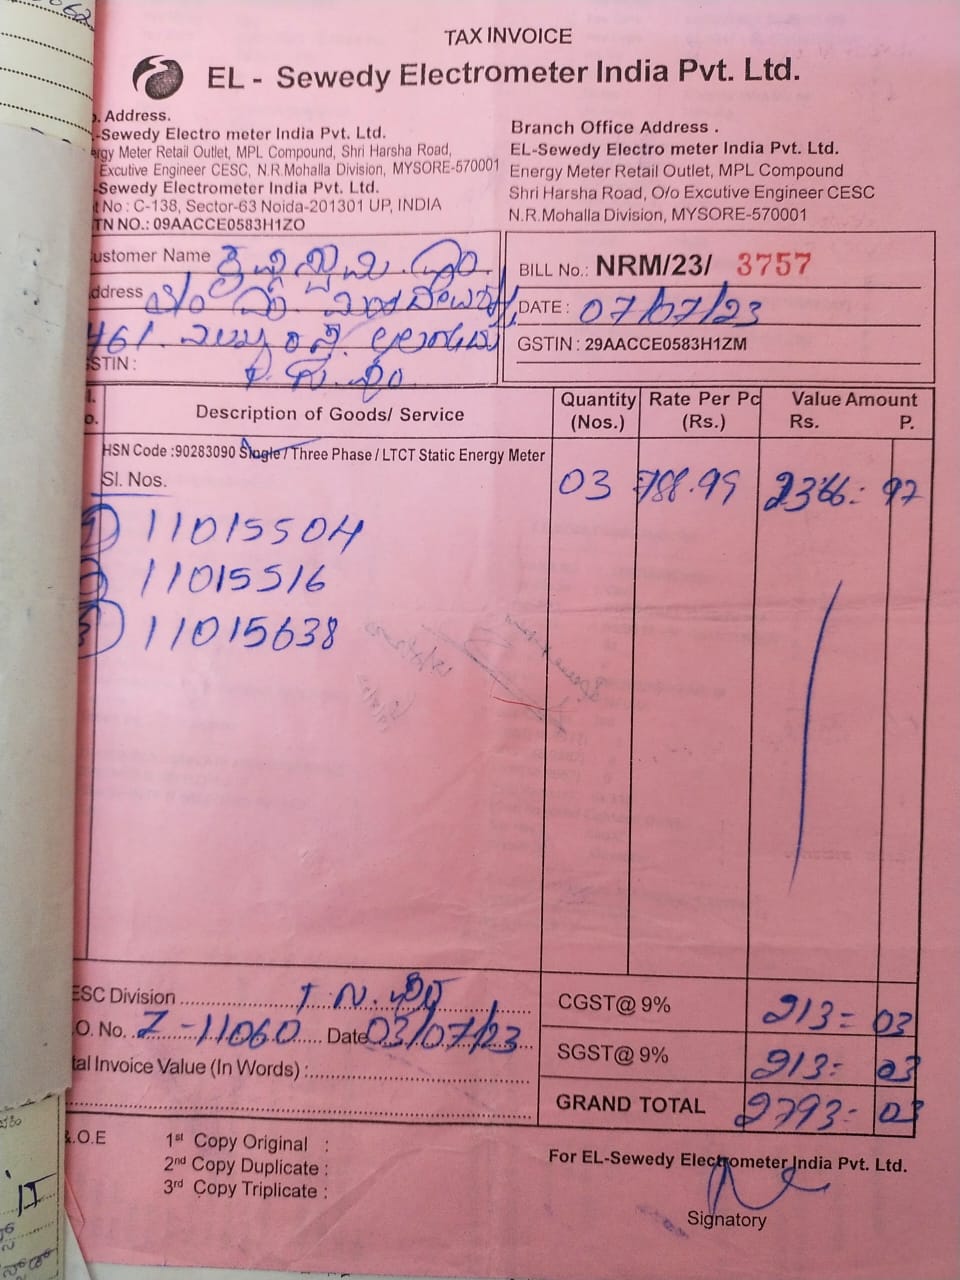 TAX INVOICE
EL - Sewedy Electrometer India Pvt. Ltd.
. Address.
-Sewedy Electro meter India Pvt. Ltd.
ergy Meter Retail Outlet, MPL Compound, Shri Harsha Road,
Excutive Engineer CESC, N.R.Mohalla Division, MYSORE-570001
-Sewedy Electrometer India Pvt. Ltd.
t No : C-138, Sector-63 Noida-201301 UP, INDIA
TN NO.: 09AACCE0583H1ZO
Branch Office Address .
EL-Sewedy Electro meter India Pvt. Ltd.
Energy Meter Retail Outlet, MPL Compound
Shri Harsha Road, O/o Excutive Engineer CESC
N.R.Mohalla Division, MYSORE-570001
ustomer Name
ddress
461
STIN :
BILL No.: NRM/23/ 3757
DATE : 07/07/23
GSTIN : 29AACCE0583H1ZM
l. Description of Goods/ Service Quantity Rate Per Pc Value Amount
o. (Nos.) (Rs.) Rs. P.
HSN Code :90283090 Single / Three Phase / LTCT Static Energy Meter
Sl. Nos. 03 788.99 2366= 97
1) 11015504
2) 11015516
3) 11015638
ESC Division
.O. No. Z-11060 Date 03/07/23
tal Invoice Value (In Words) :
CGST@ 9% 213= 03
SGST@ 9% 213= 03
GRAND TOTAL 2793= 03
&.O.E
1st Copy Original :
2nd Copy Duplicate :
3rd Copy Triplicate :
For EL-Sewedy Electrometer India Pvt. Ltd.
Signatory